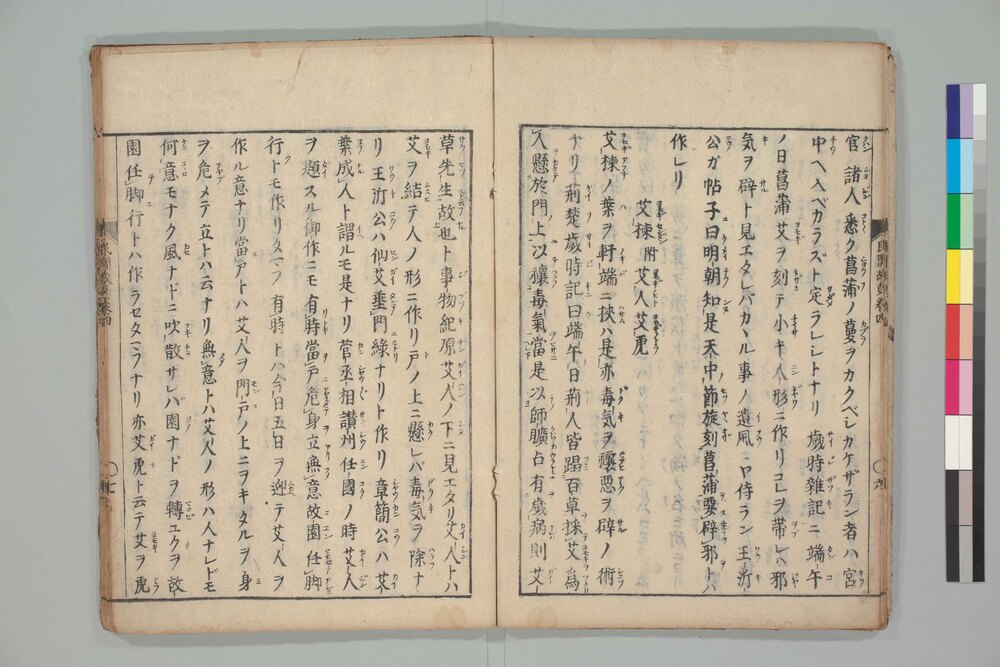 官諸人悉ク菖蒲ノ蘰ヲカクベシカケザラン者ハ宮
中ヘ入ベカラズト定ラレシトナリ 歳時雑記ニ端午
ノ日菖蒲艾ヲ刻テ小キ人形ニ作リコレヲ帯レハ邪
気ヲ辟ト見エタレバカヽル事ノ遺風ニヤ侍ラン王沂
公ガ帖子曰明朝知是天中節旋刻菖蒲要辟邪トハ
作レリ
艾楝附艾人艾虎
艾楝ノ葉ヲ軒端ニ挟ハ是亦毒気ヲ禳悪ヲ辟ノ術
ナリ荊楚歳時記曰端午日荊人皆蹋百草採艾爲
人懸於門上以禳毒氣當是以師曠占有歳病則艾
草先生故也ト事物紀原艾人ノ下ニ見エタリ艾人トハ
艾ヲ結テ人ノ形ニ作リ戸ノ上ニ懸レバ毒気ヲ除ナ
リ王沂公ハ仙艾垂門綠ナリト作リ章簡公ハ艾
葉成人ト謂ルモ是ナリ菅丞相讃州任國ノ時艾人
ヲ題スル御作ニモ有時當戸危身立無意故園任脚
行トモ作リ玉フ有時トハ今日五日ヲ迎テ艾人ヲ
作ル意ナリ當戸トハ艾人ヲ門戸ノ上ニヲキタルヲ身
ヲ危メテ立トハ云ナリ無意トハ艾人ノ形ハ人ナレドモ
何意モナク風ナドニ吹散サレバ園ナドヲ轉ユクヲ故
園任脚行トハ作ラセ玉フナリ亦艾虎ト云テ艾ヲ虎